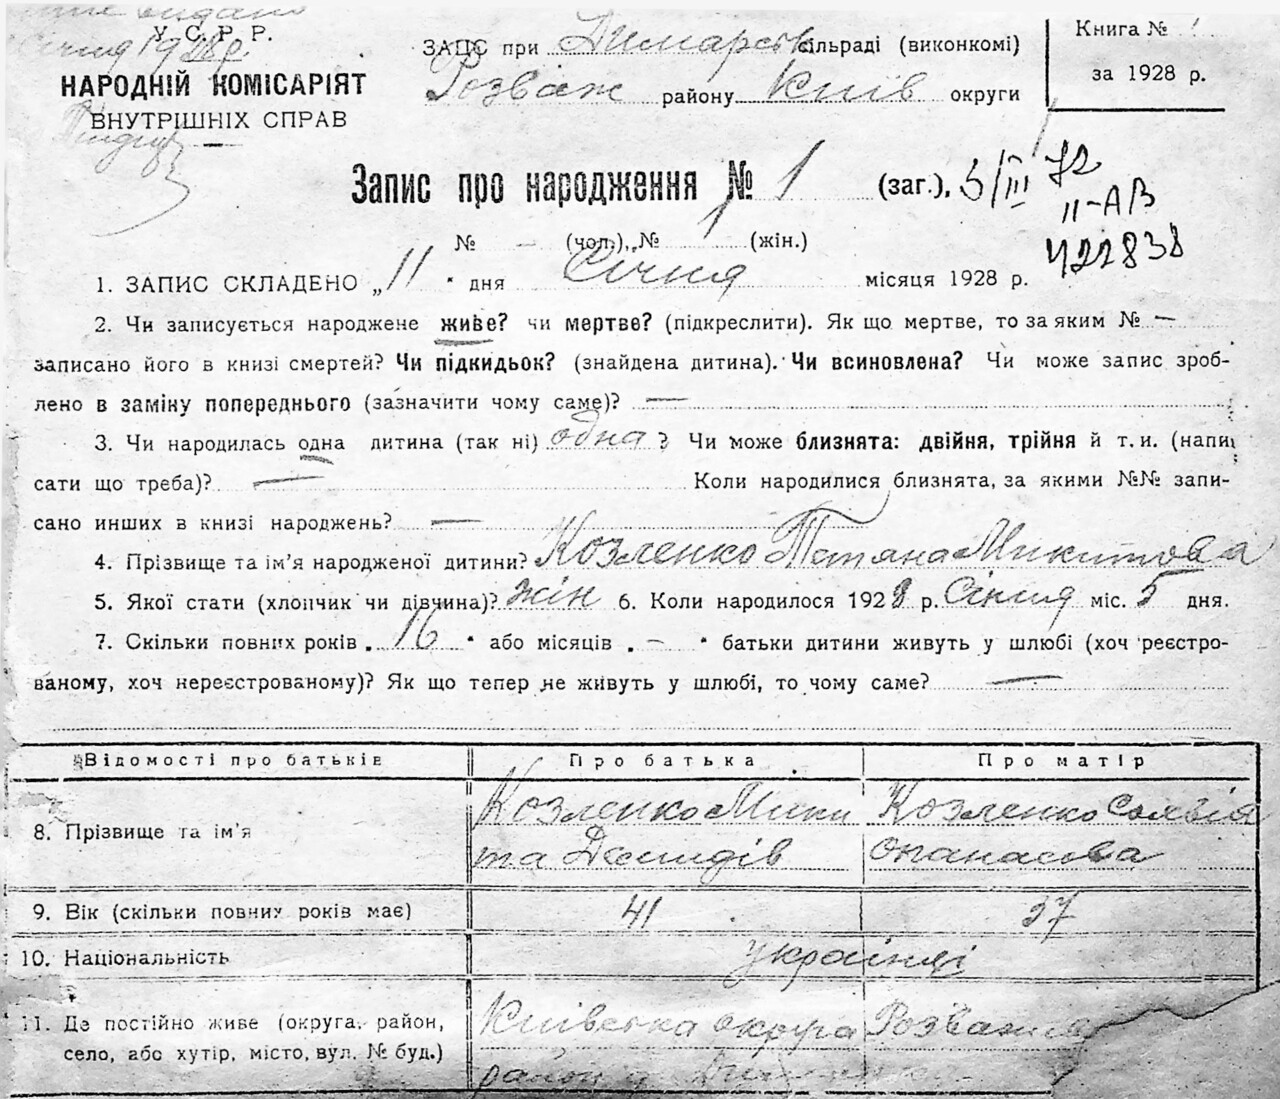 У. С. Р. Р.
НАРОДНІЙ КОМІСАРІЯТ
ВНУТРІШНІХ СПРАВ
ЗАПС при Димарск сільраді (виконкомі)
Розваж району Київ округи
Книга №
за 1928 р.
Запис про народження № 1 (заг.), 3/III 72
II-АВ
422838
№ — (чол.), № 1 (жін.)
1. ЗАПИС СКЛАДЕНО „11" дня Січня місяця 1928 р.
2. Чи записується народжене живе? чи мертве? (підкреслити). Як що мертве, то за яким № —
записано його в книзі смертей? Чи підкидьок? (знайдена дитина). Чи всиновлена? Чи може запис зроб-
лено в заміну попереднього (зазначити чому саме)? —
3. Чи народилась одна дитина (так ні) одна? Чи може близнята: двійня, трійня й т. и. (напи
сати що треба)? — Коли народилися близнята, за якими №№ запи-
сано инших в книзі народжень? —
4. Прізвище та ім'я народженої дитини? Козленко Тетяна Микитова
5. Якої стати (хлопчик чи дівчина)? жін 6. Коли народилося 1928 р. Січня міс. 5 дня.
7. Скільки повних років „16" або місяців „—" батьки дитини живуть у шлюбі (хоч реєстро-
ваному, хоч нереєстрованому)? Як що тепер не живуть у шлюбі, то чому саме? —
Відомості про батьків Про батька Про матір
8. Прізвище та ім'я Козленко Мики Козленко
та Демидів Опанасова
9. Вік (скільки повних років має) 41 37
10. Національність українці
11. Де постійно живе (округа, район, Київська округа
село, або хутір, місто, вул. № буд.) район